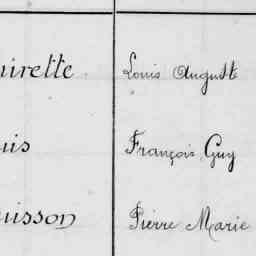 uirette Louis Auguste
uis François Guy
uisson Pierre Marie